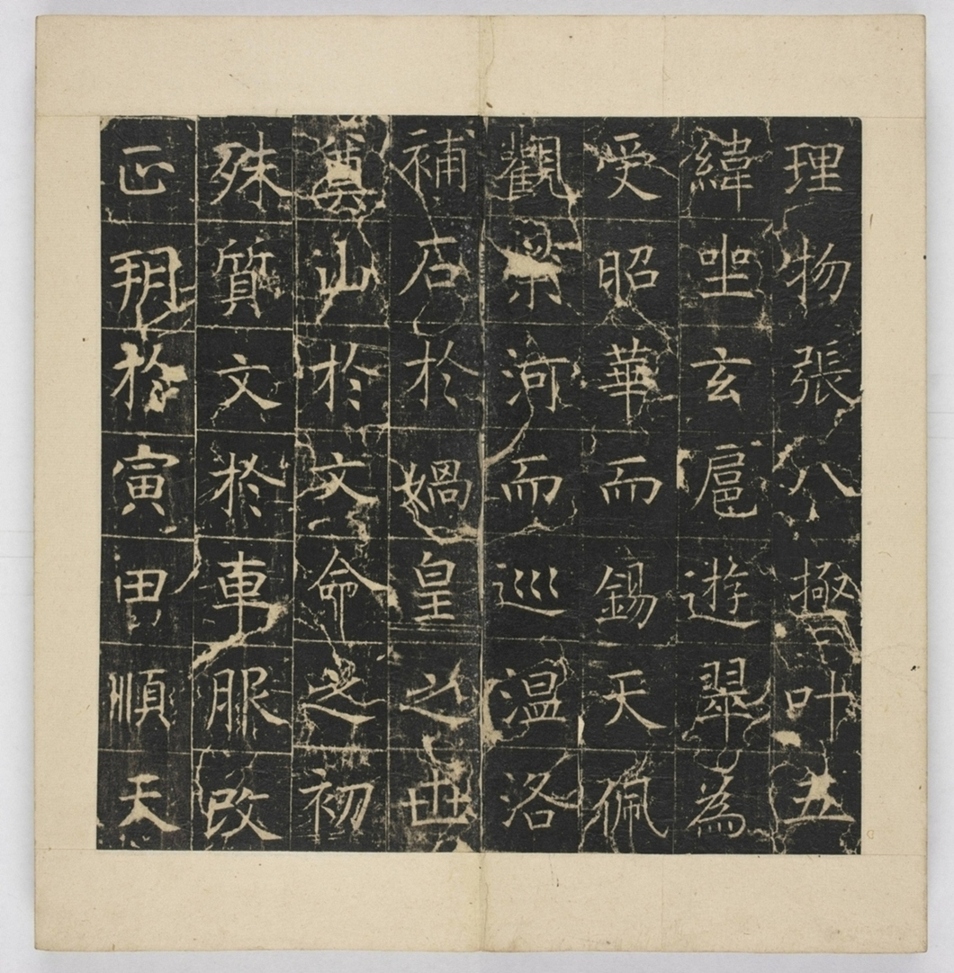 理物張八極叶五
緯坐玄扈遊翠為
受昭華而錫天佩
觀榮河而巡溫洛
補石於媧皇之世
奠山於文命之初
殊質文於車服改
正朔於寅甲順天